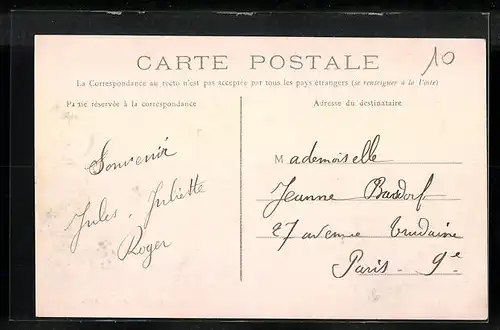 CARTE POSTALE
10
La Correspondance au recto n'est pas acceptée par tous les pays étrangers (se renseigner à la Poste)
Partie réservée à la correspondance
Adresse du destinataire
Souvenir
Jules, Juliette
Roger
Mademoiselle
Jeanne
27 avenue Trudaine
Paris - 9e